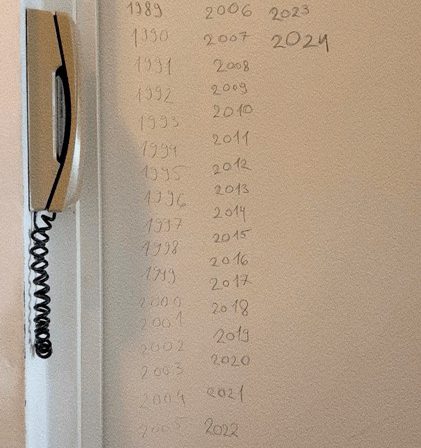 1989
1990
1991
1992
1993
1994
1995
1996
1997
1998
1999
2000
2001
2002
2003
2004
2005
2006
2007
2008
2009
2010
2011
2012
2013
2014
2015
2016
2017
2018
2019
2020
2021
2022
2023
2024